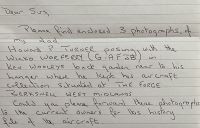 Dear Sir,
Please find enclosed 3 photographs, of
my dad
Howard P Turner posing with the
(G-AFJB) in
Ken back garden near to his
hanger where he kept his aircraft
collection situated at THE FORGE
BERKSWELL WEST MIDLANDS
Could you please forward these photographs
to the current owner for his history
file of the aircraft